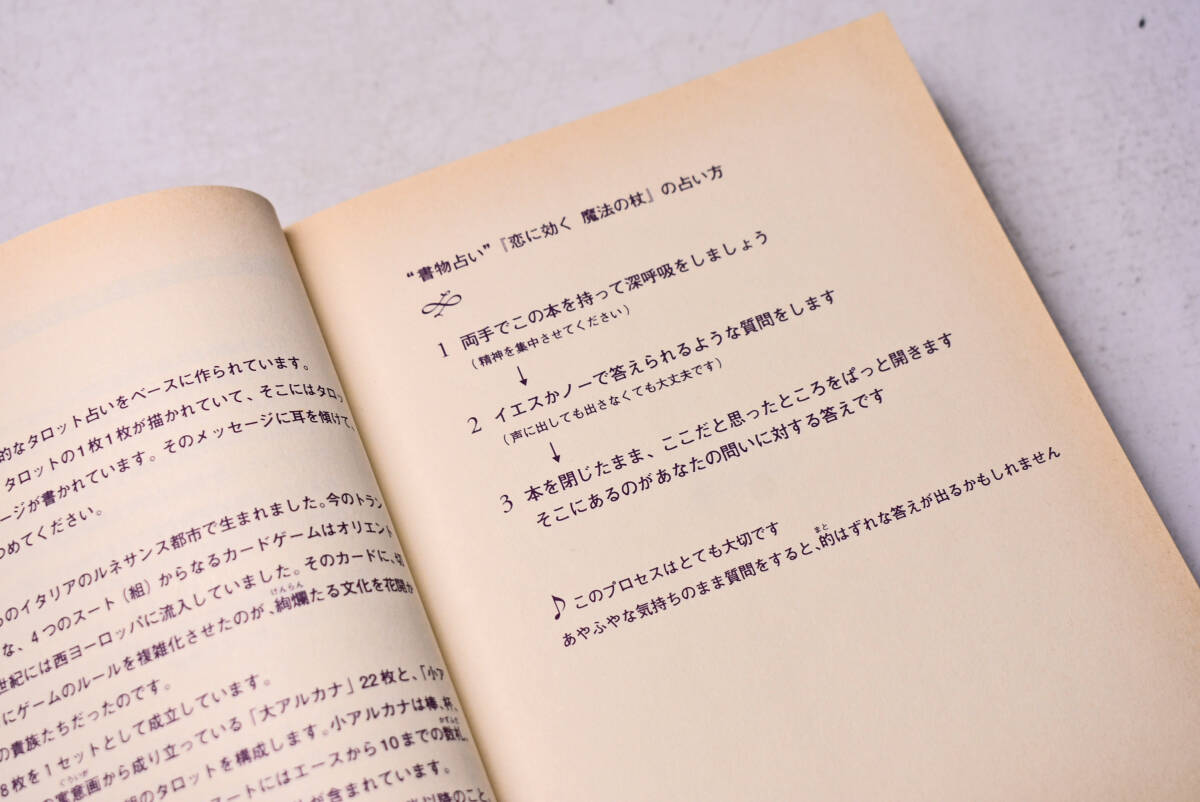 的なタロット占いをベースに作られています。
タロットの1枚1枚が描かれていて、そこにはタロッ
ージが書かれています。そのメッセージに耳を傾けて、
つめてください。
らのイタリアのルネサンス都市で生まれました。今のトラン
な、4つのスート(組)からなるカードゲームはオリエント
世紀には西ヨーロッパに流入していました。そのカードに、切
にゲームのルールを複雑化させたのが、絢爛たる文化を花開か
けんらん
の貴族たちだったのです。
8枚を1セットとして成立しています。
の寓意画から成り立っている「大アルカナ」22枚と、「小ア
ぐういが
のタロットを構成します。小アルカナは棒、杯、
ートにはエースから10までの数札、
かずふだ
が含まれています。
以降のこと、
“書物占い”『恋に効く 魔法の杖』の占い方
1 両手でこの本を持って深呼吸をしましょう
(精神を集中させてください)
↓
2 イエスかノーで答えられるような質問をします
(声に出しても出さなくても大丈夫です)
↓
3 本を閉じたまま、ここだと思ったところをぱっと開きます
そこにあるのがあなたの問いに対する答えです
♪このプロセスはとても大切です
あやふやな気持ちのまま質問をすると、的はずれな答えが出るかもしれません
まと